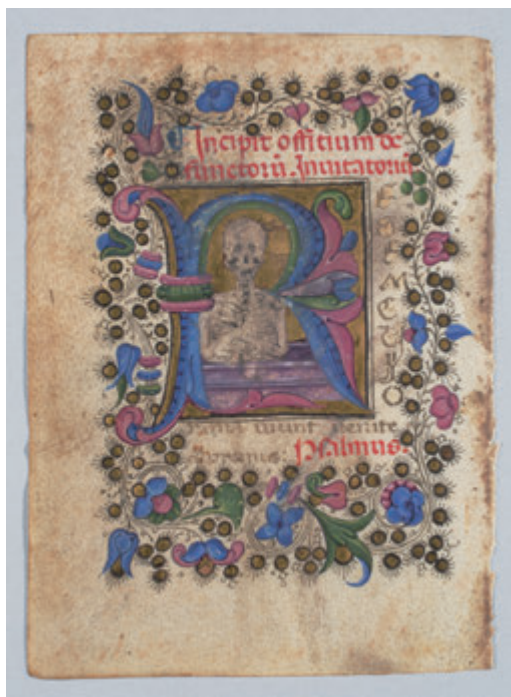 Incipit offitium de
functorū. Inuitatoriū.
R
E
G
E
M
C
U
I
O
mnia uiuunt uenite
adoremus: Psalmus.